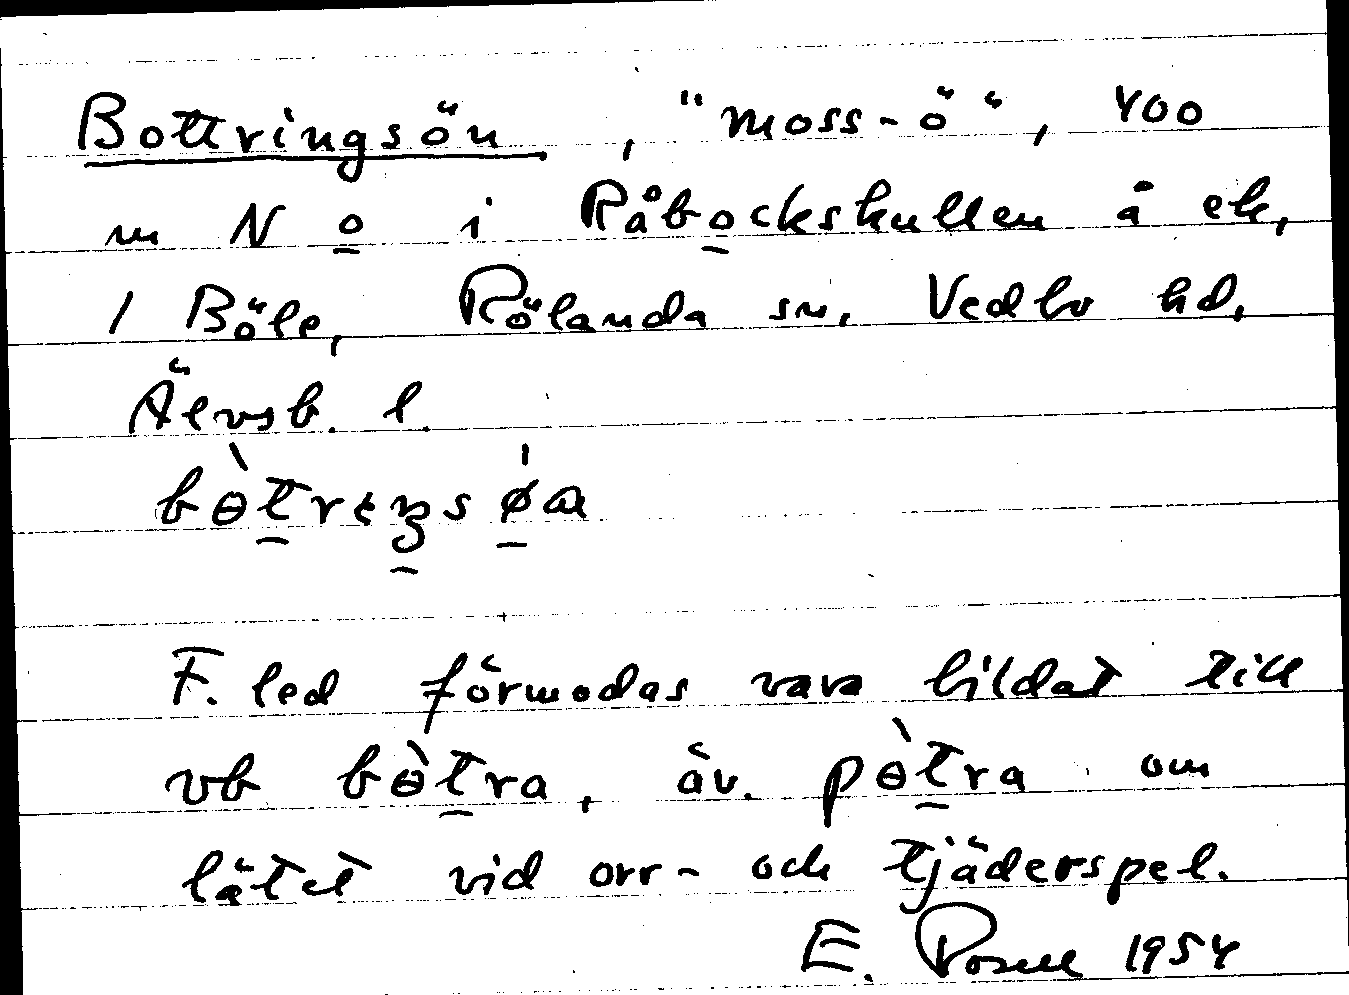 Bottringsön, "moss-ö", 400
m N o i Råbockskullen å ek,
1 Böle, Rölanda sn. Vedbo hd,
Älvsb. l.
bɵ̀trɩŋsǿa
F. led förmodas vara bildat till
vb bɵ̀tra, äv. pɵ̀tra om
lätet vid orr- och tjäderspel.
E. 1954